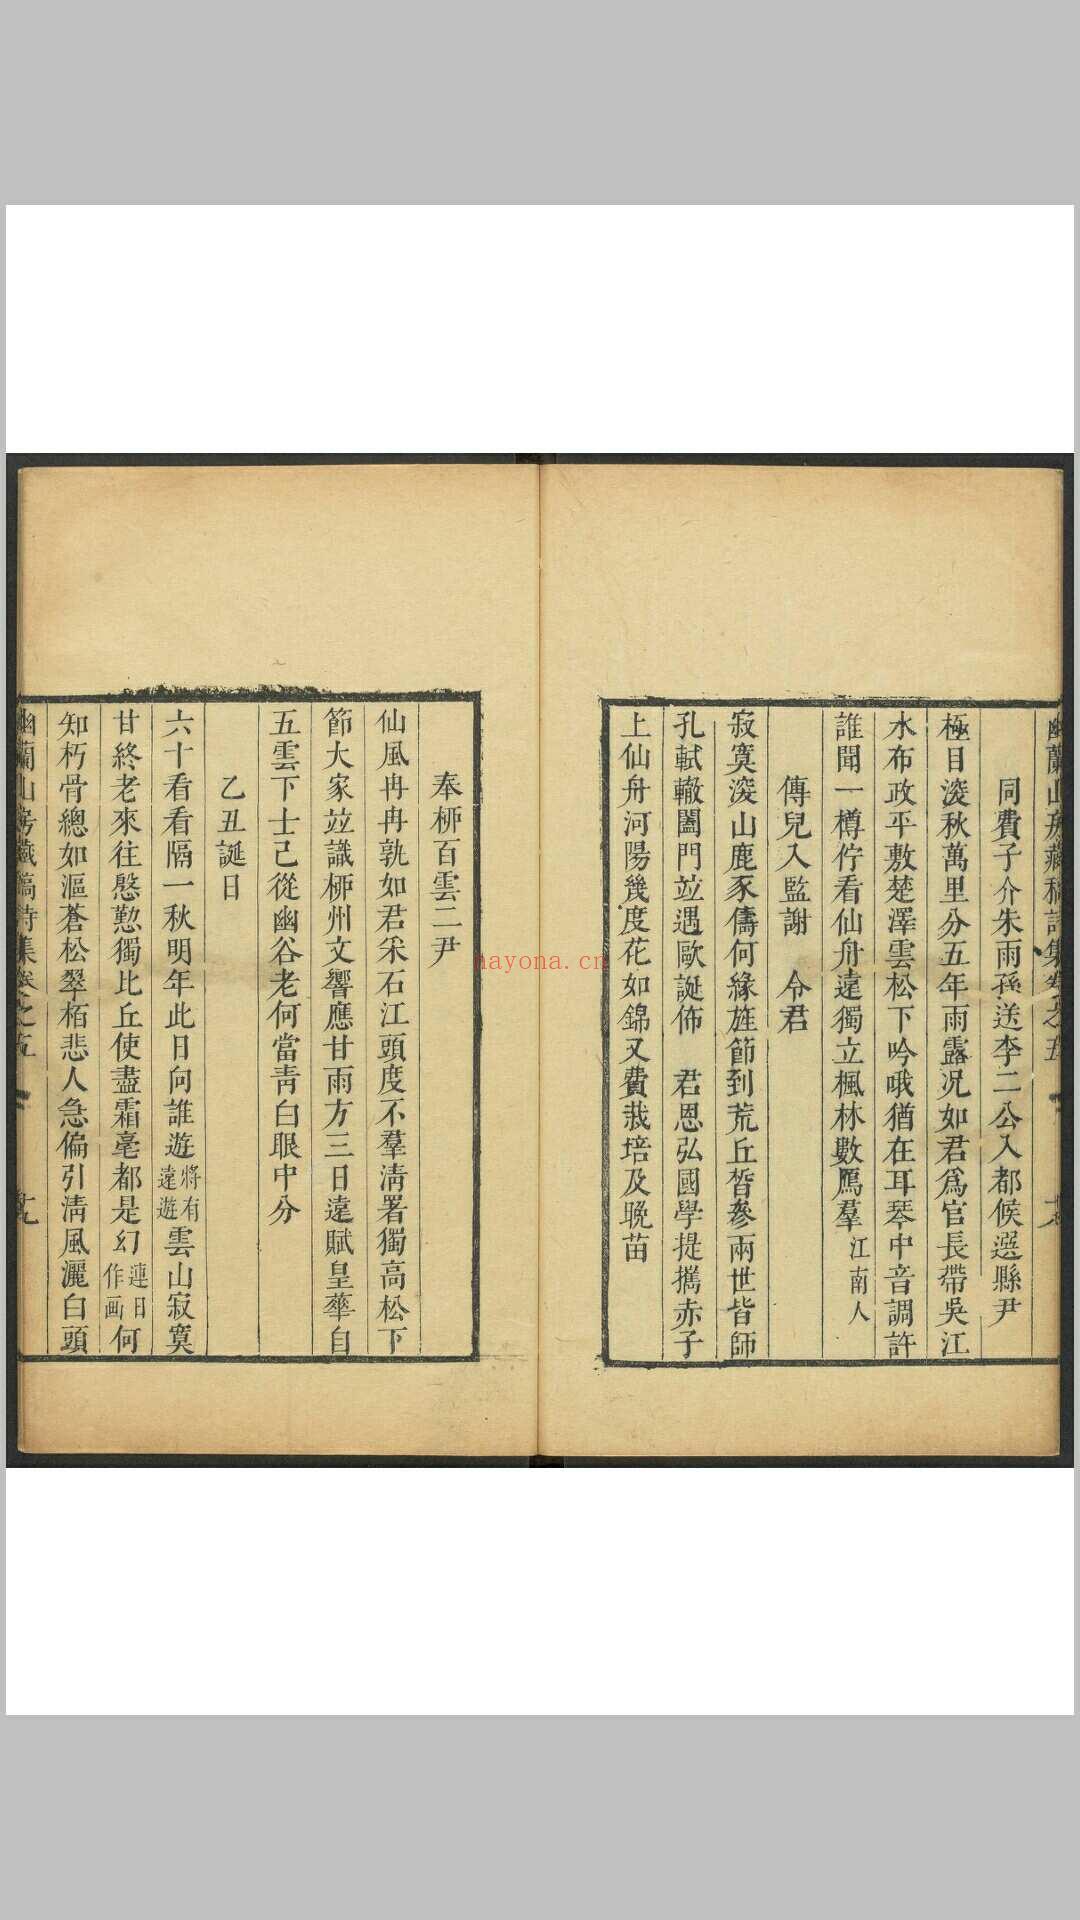 幽蘭山房藏稿詩集卷之五
同費子介朱雨孫送李二公入都候選縣尹
極目深秋萬里分五年雨露況如君爲官長帶吳江
水布政平敷楚澤雲松下吟哦猶在耳琴中音調許
誰聞一樽佇看仙舟遠獨立楓林數鴈羣江南人
傳兒入監謝　令君
寂寞深山鹿豕儔何緣旌節到荒丘皆叅兩世皆師
孔軾轍闔門竝遇歐誕佈　君恩弘國學提攜赤子
上仙舟河陽幾度花如錦又費栽培及晚苗
奉桺百雲二尹
仙風冉冉孰如君采石江頭度不羣淸署獨高松下
節大家竝識桺州文響應甘雨方三日遠賦皇華自
五雲下士己從幽谷老何當靑白眼中分
乙丑誕日
六十看看隔一秋明年此日向誰遊將有遠遊雲山寂寞
甘終老來往慇懃獨比丘使盡霜毫都是幻連日作画何
知朽骨總如漚蒼松翠栢悲人急偏引淸風灑白頭
幽蘭山房藏稿詩集卷之五　十九
hayona.cn